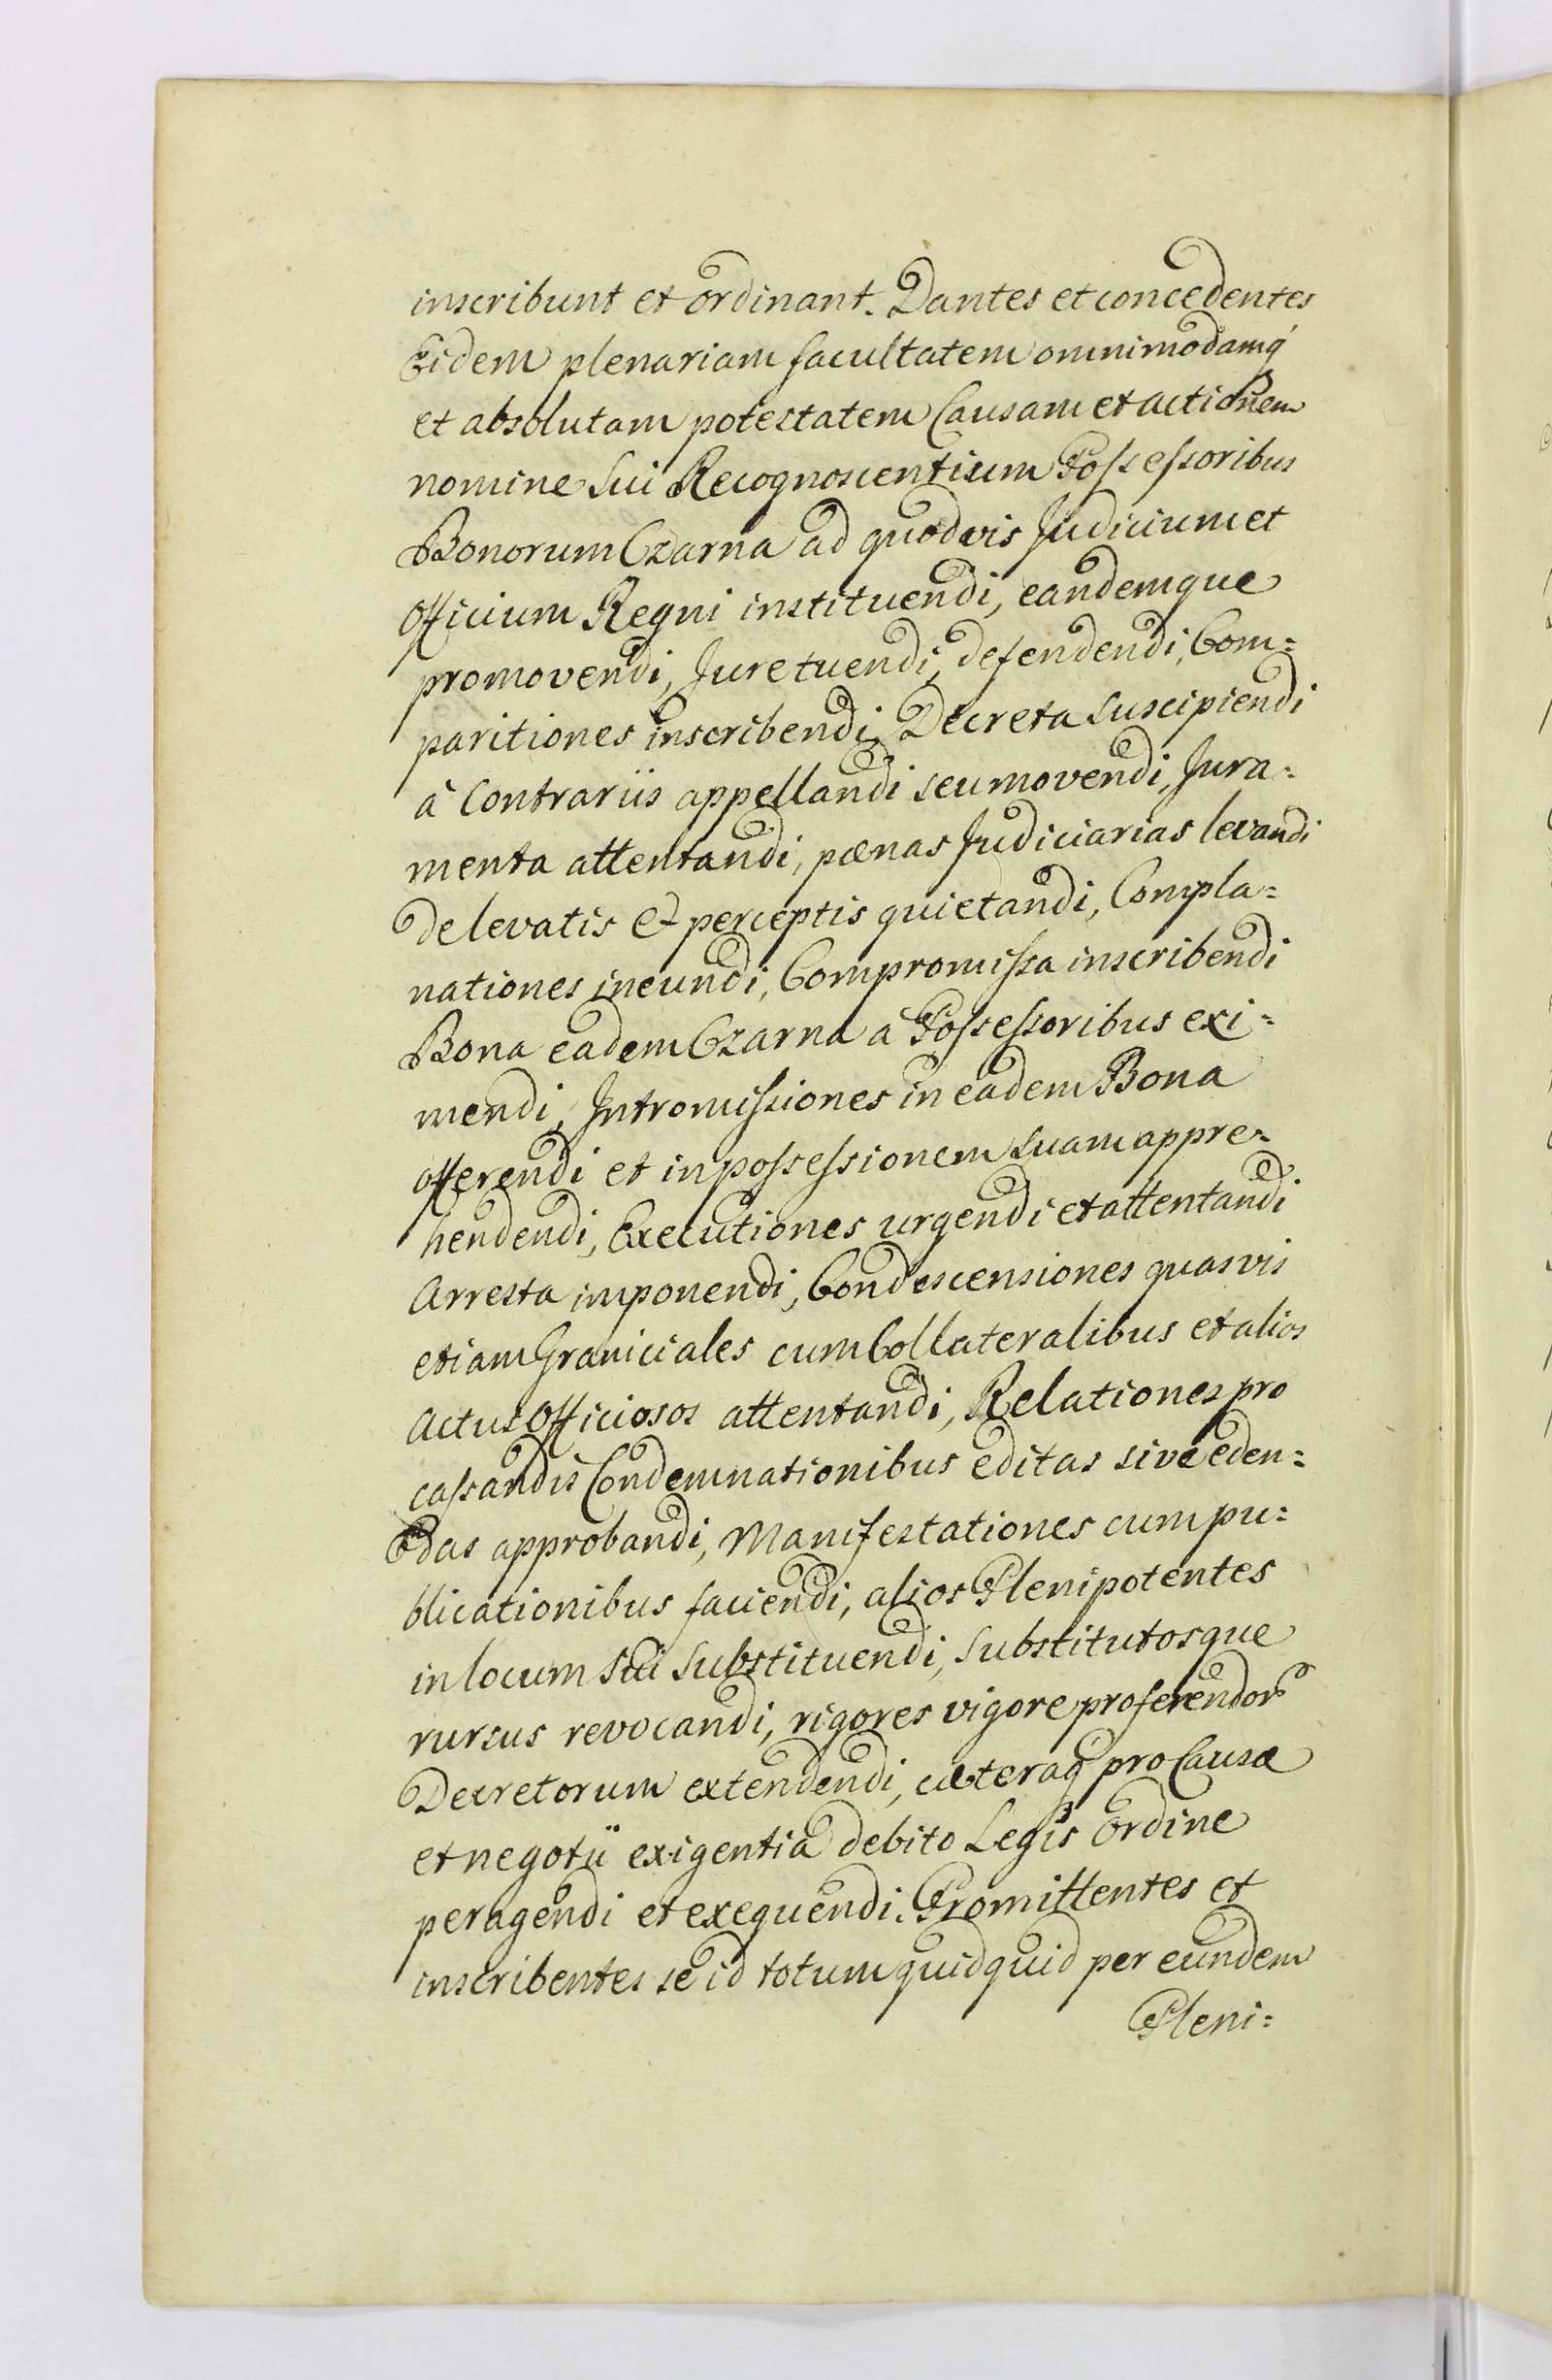 inscribunt et ordinant. Dantes et concedentes
Eidem plenariam facultatem omnimodamq́
et absolutam potestatem Causam et actionem
nomine Sui Recognoscentium Possessoribus
Bonorum Czarna ad quodvis Judicium et
Officium Regni instituendi, eandemque
promovendi, Jure tuendi, defendendi, Com=
paritiones inscribendi, Decreta suscipiendi
â Contrariis appellandi seu movendi, Jura=
menta attentandi, pœnas Judiciarias levandi
de levatis et perceptis quietandi, Compla=
nationes ineundi, Compromissa inscribendi
Bona eadem Czarna à Possessoribus exi=
mendi, Intromissiones in eadem Bona
offerendi et in possessionem suam appre=
hendendi, Executiones urgendi et attentandi
Arresta imponendi, Condescensiones quasvis
etiam Graniciales cum Collateralibus et alios
Actus Officiosos attentandi, Relationes pro
cassandis Condemnationibus editas sive eden=
das approbandi, Manifestationes cum pu=
blicationibus faciendi, alios Plenipotentes
in locum Sui substituendi, substitutosque
rursus revocandi, rigores vigore proferendor
Decretorum extendendi, cæteraq́ pro Causæ
et negotii exigentia debito Legis Ordine
peragendi et exequendi. Promittentes et
inscribentes se id totum quidquid per eundem
Pleni=